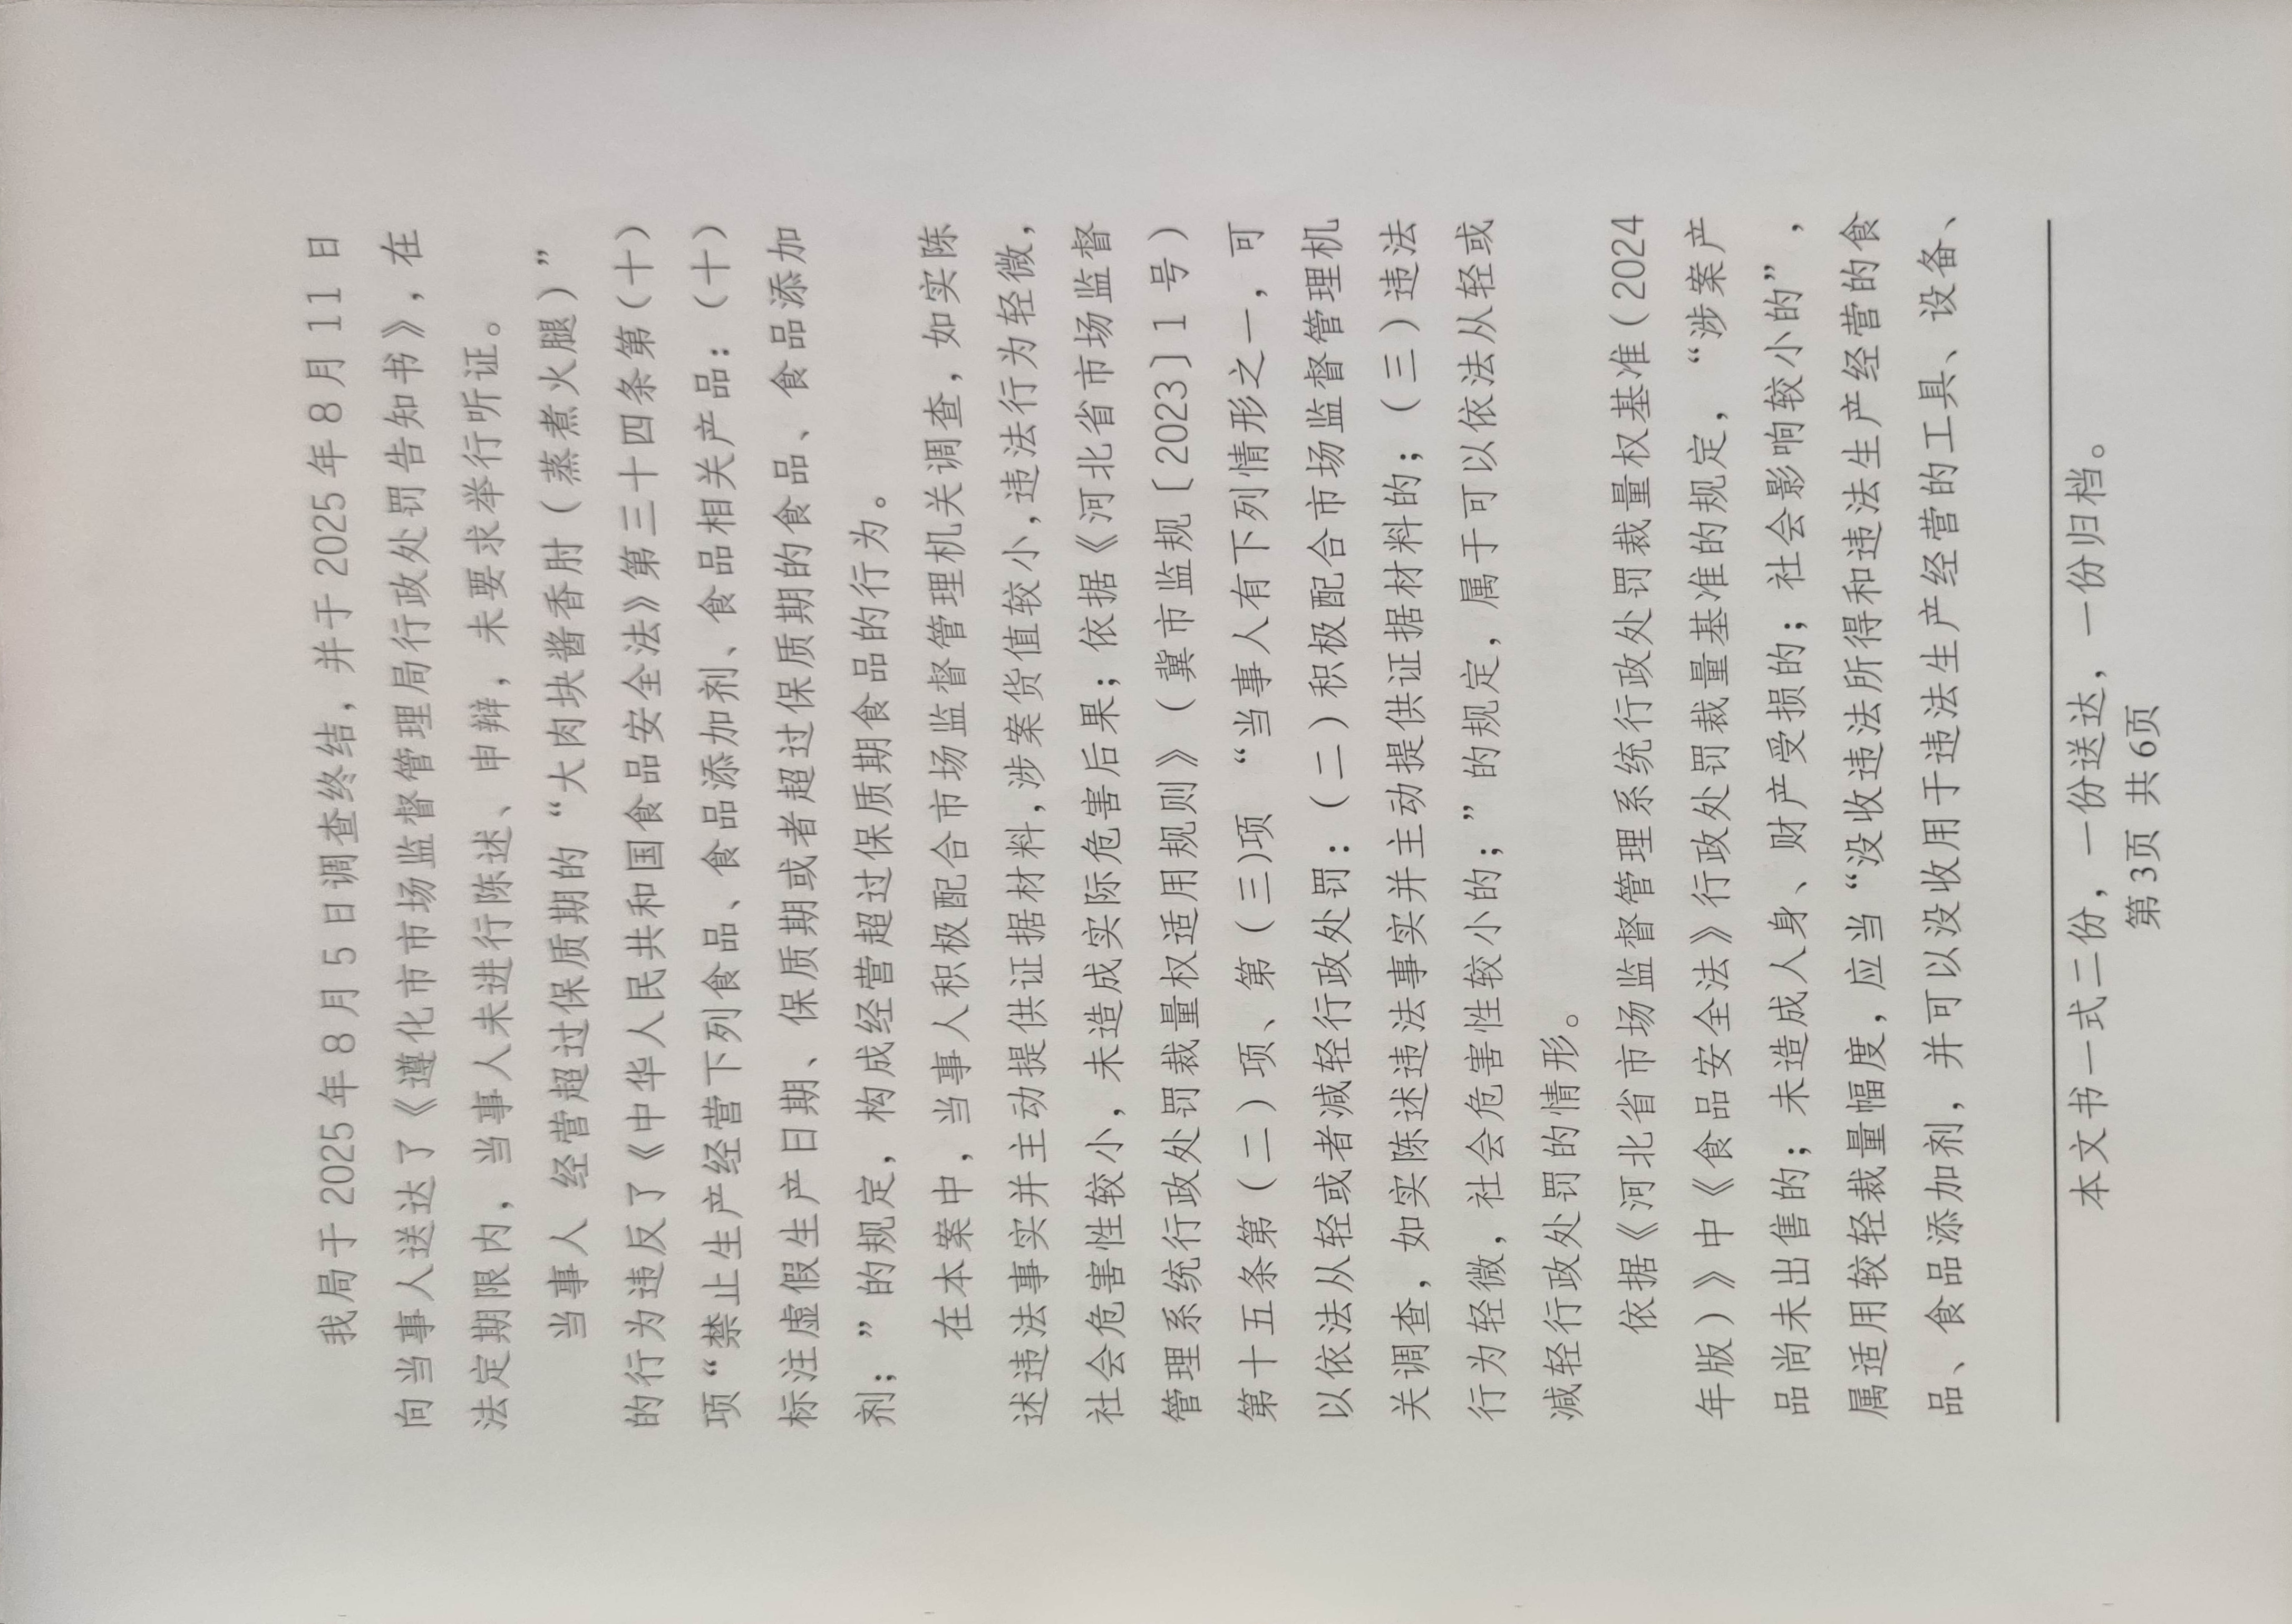 我局于2025年8月5日调查终结，并于2025年8月11日
向当事人送达了《遵化市市场监督管理局行政处罚告知书》，在
法定期限内，当事人未进行陈述、申辩，未要求举行听证。
当事人 经营超过保质期的“大肉块酱香肘（蒸煮火腿）”
的行为违反了《中华人民共和国食品安全法》第三十四条第（十）
项“禁止生产经营下列食品、食品添加剂、食品相关产品：（十）
标注虚假生产日期、保质期或者超过保质期的食品、食品添加
剂；”的规定，构成经营超过保质期食品的行为。
在本案中，当事人积极配合市场监督管理机关调查，如实陈
述违法事实并主动提供证据材料，涉案货值较小，违法行为轻微，
社会危害性较小，未造成实际危害后果；依据《河北省市场监督
管理系统行政处罚裁量权适用规则》（冀市监规〔2023〕1号）
第十五条第（二）项、第（三)项 “当事人有下列情形之一，可
以依法从轻或者减轻行政处罚：（二）积极配合市场监督管理机
关调查，如实陈述违法事实并主动提供证据材料的；（三）违法
行为轻微，社会危害性较小的；”的规定，属于可以依法从轻或
减轻行政处罚的情形。
依据《河北省市场监督管理系统行政处罚裁量权基准（2024
年版）》中《食品安全法》行政处罚裁量基准的规定，“涉案产
品尚未出售的；未造成人身、财产受损的；社会影响较小的”，
属适用较轻裁量幅度，应当“没收违法所得和违法生产经营的食
品、食品添加剂，并可以没收用于违法生产经营的工具、设备、
本文书一式二份，一份送达，一份归档。
第3页 共6页